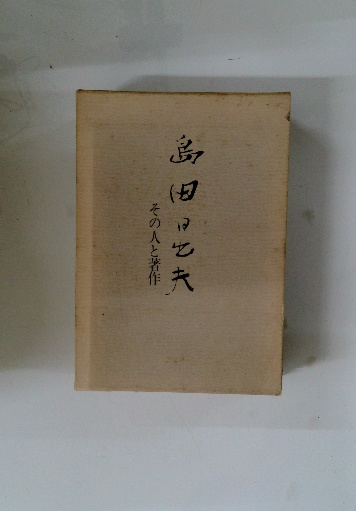 島田日出夫
その人と著作